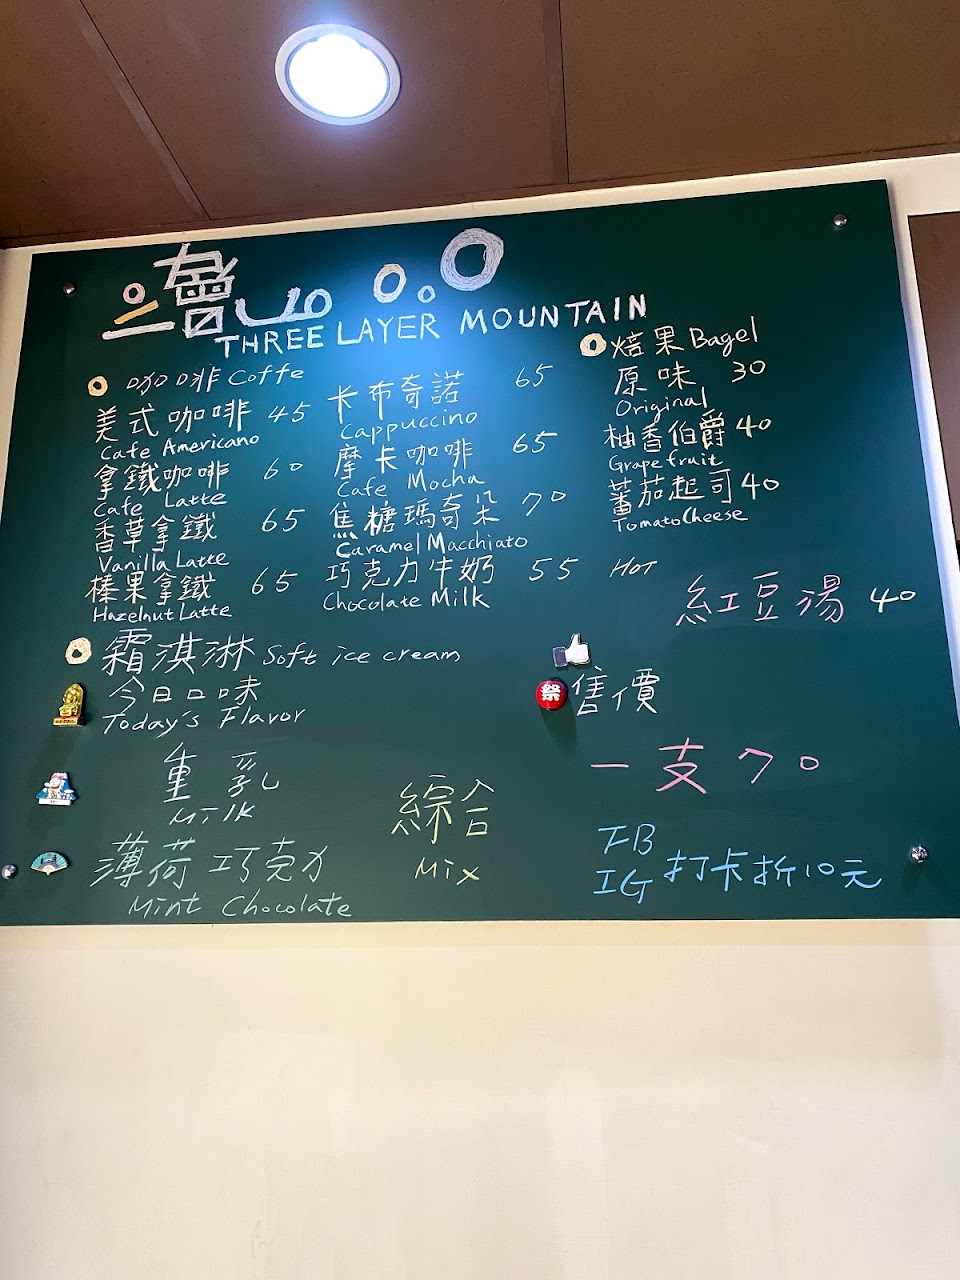 三層山
THREE LAYER MOUNTAIN
咖啡 Coffe
美式咖啡 45
Cafe Americano
拿鐵咖啡 60
Cafe Latte
香草拿鐵 65
Vanilla Latte
榛果拿鐵 65
Hazelnut Latte
卡布奇諾 65
Cappuccino
摩卡咖啡 65
Cafe Mocha
焦糖瑪奇朵 70
Caramel Macchiato
巧克力牛奶 55 HOT
Chocolate Milk
焙果 Bagel
原味 30
Original
柚香伯爵 40
Grapefruit
蕃茄起司 40
Tomato Cheese
紅豆湯 40
霜淇淋 Soft ice cream
今日口味
Today's Flavor
重乳
Milk
薄荷巧克力
Mint Chocolate
綜合
Mix
祭
售價
一支 70
FB
IG 打卡折10元